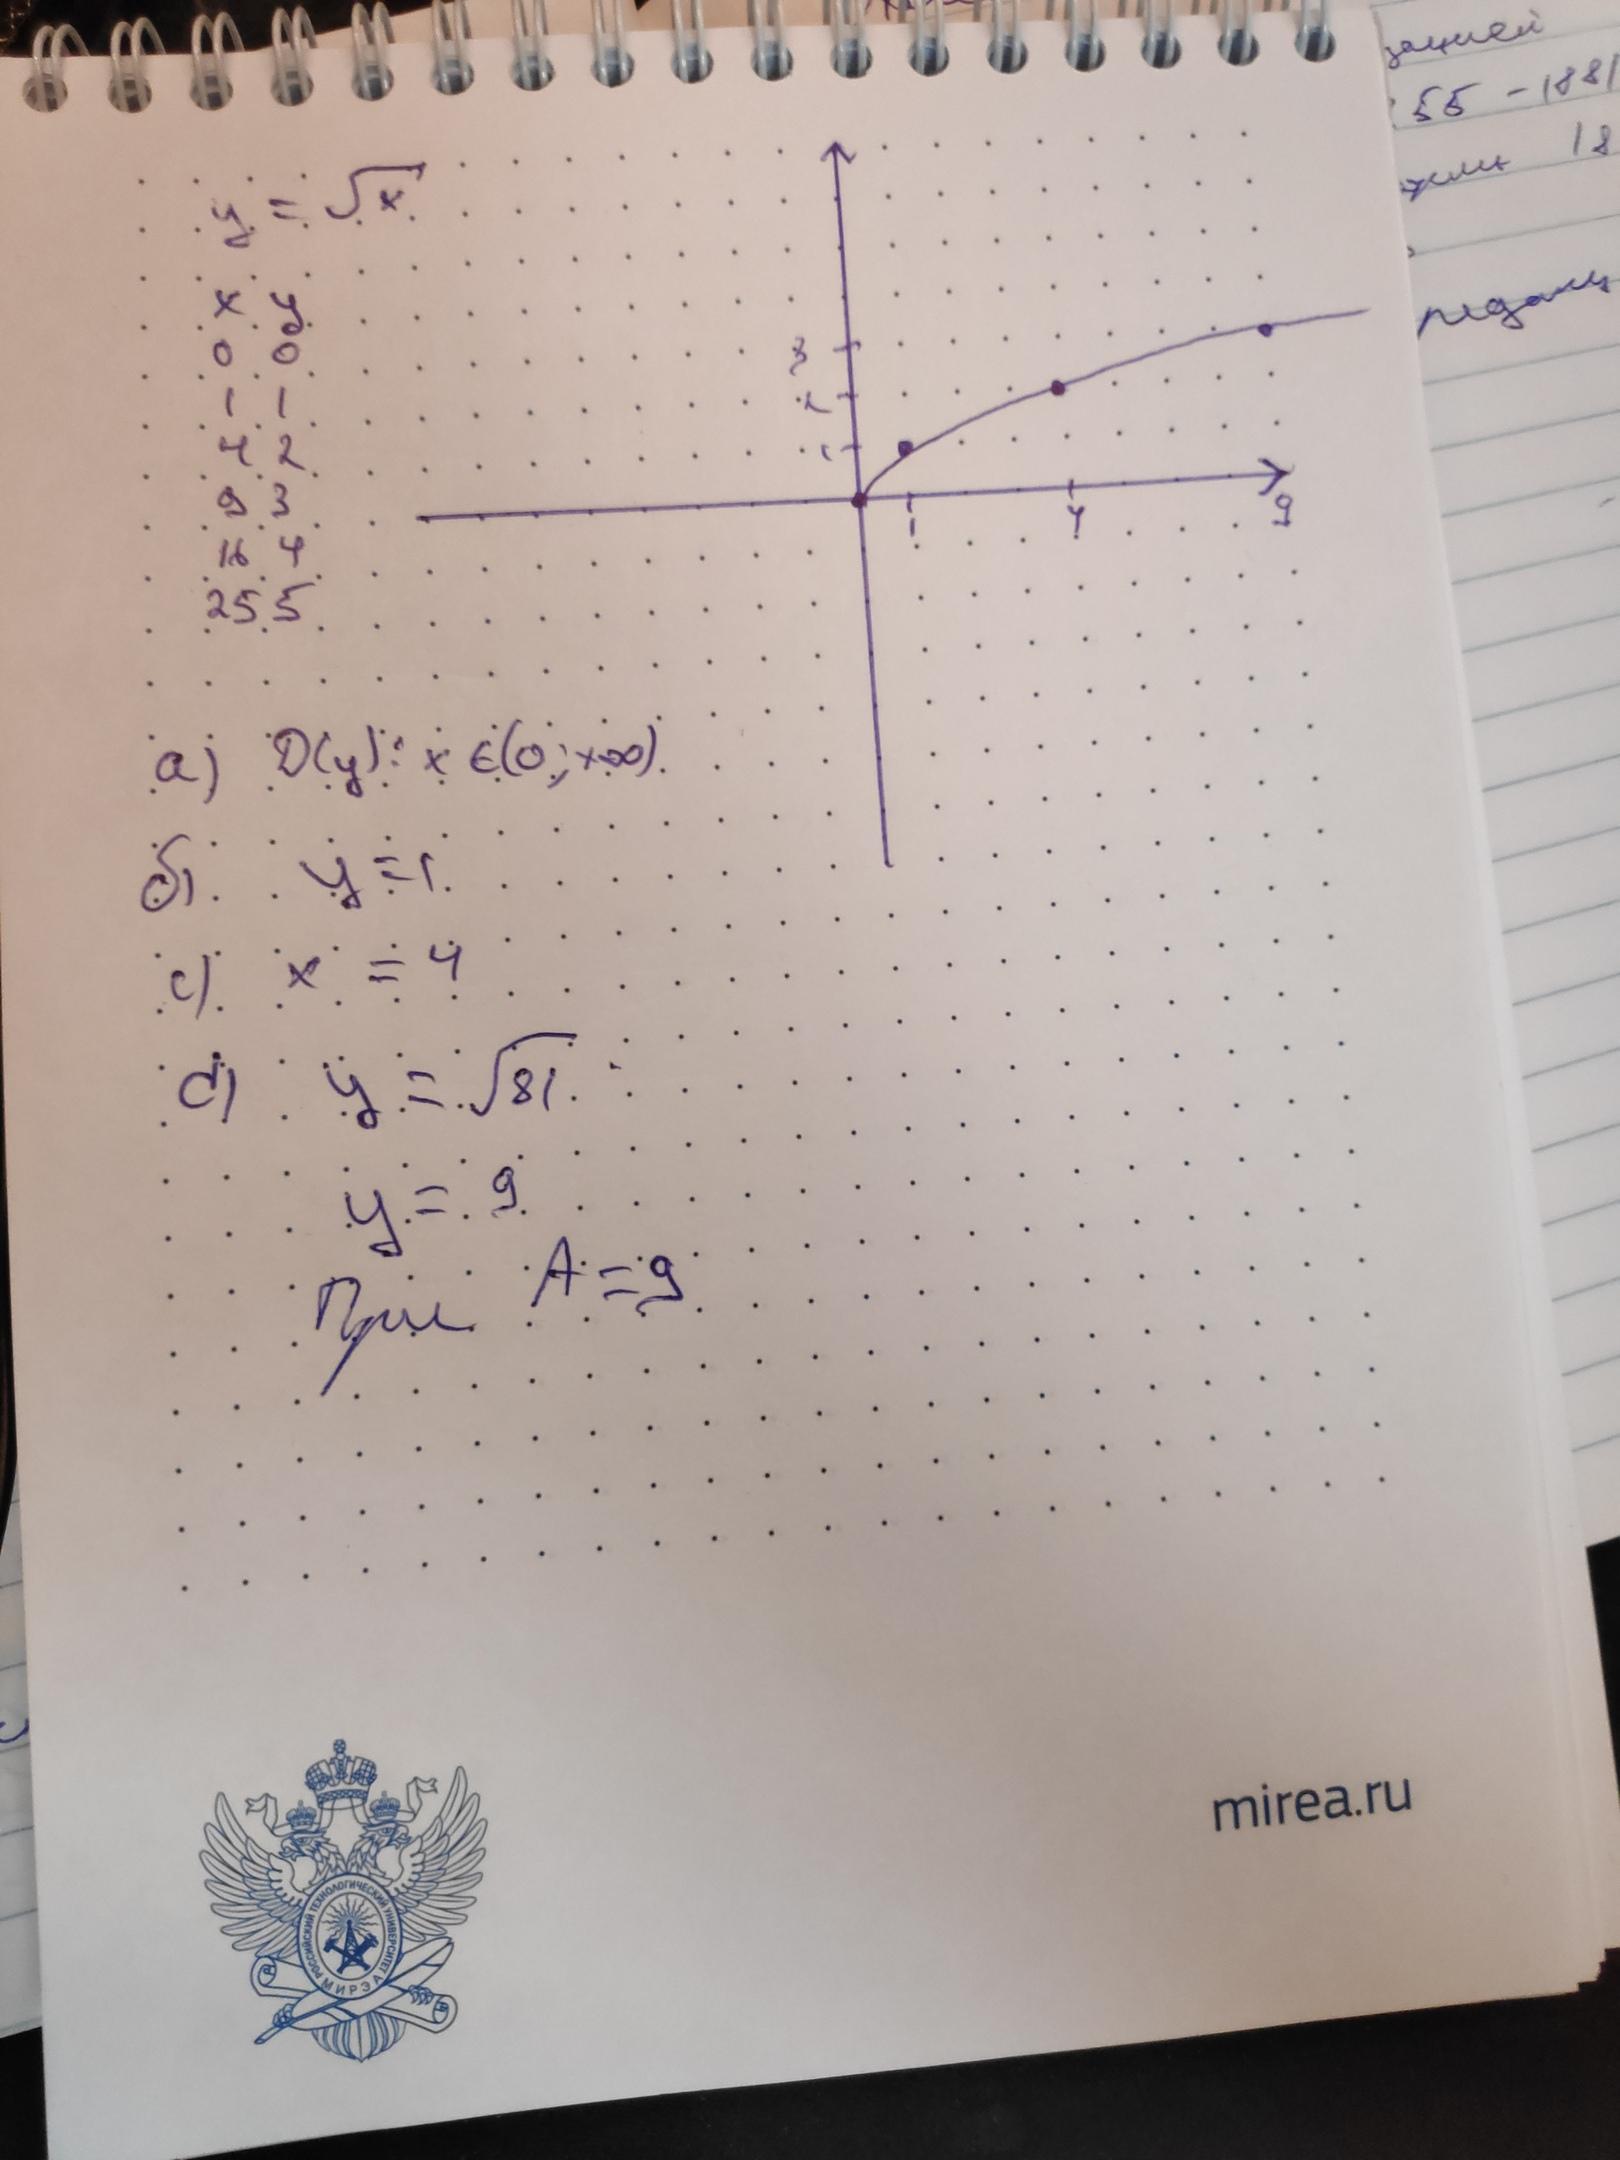 y = √x
x y
0 0
1 1
4 2
9 3
16 4
25 5
3
2
1
1 4 9
а) D(y): x ∈ (0; +∞)
б) y = 1
c) x = 4
d) y = √81
y = 9
При A = 9
зацией
55 - 1881
18
редакц
mirea.ru
РОССИЙСКИЙ ТЕХНОЛОГИЧЕСКИЙ УНИВЕРСИТЕТ
МИРЭА